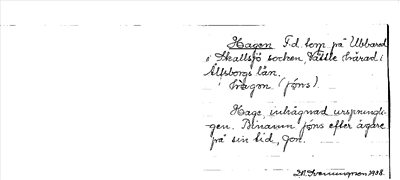 Hagen F.d. torp på Ubbared
i Skallsjö socken, Vättle härad i
Älfsborgs län.
i hagen (jöns).
Hage, inhägnad urspringli-
gen. Binamn jöns efter ägare
på sin tid, Jon.
1938